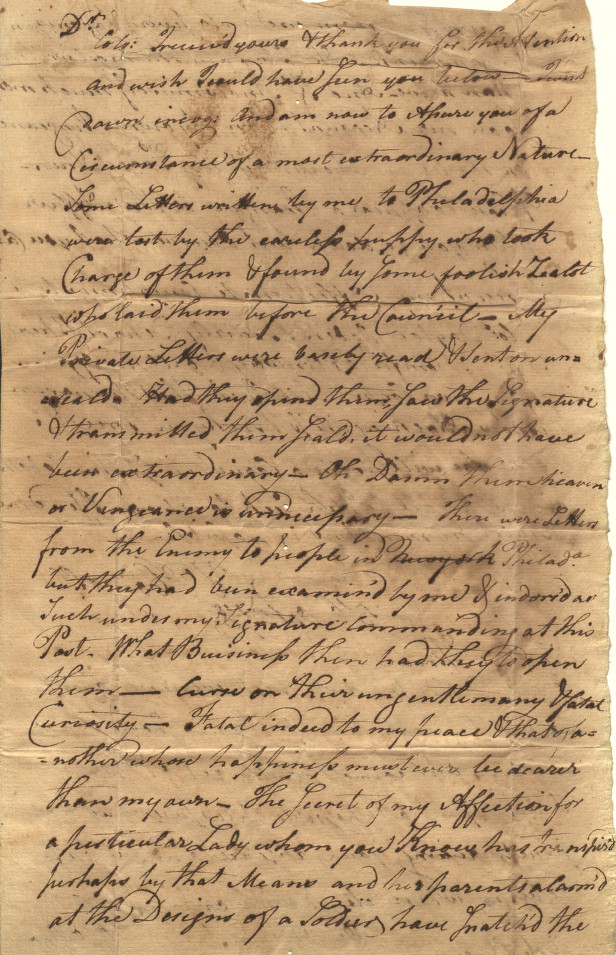 Dr.
Colo: I receivd yours & thank you for the Attention
and wish I could have seen you below —
Down and am now to Apure you of a
Circumstance of a most extraordinary Nature —
Some Letters written by me to Philadelphia
were lost by the careless puppy who took
Charge of them & found by some foolish Zealot
who laid them before the Council — My
Private Letters were basely read & sent on un-
seald. Had they opend them, saw the Signature
& transmitted them seald, it would not have
been extraordinary — Oh Damn them heaven
or Vengeance is unnecessary — There were Letters
from the Enemy to people in Newyork Philada.
but they had been examin'd by me & indorsd as
such under my Signature commanding at this
Post. What Buisiness then had they to open
them — Curse on their ungentlemany & fatal
Curiosity — Fatal indeed to my peace & that of a-
-nother whose happiness must ever be dearer
than my own — The Secret of my Affection for
a perticular Lady whom you Know has transpir'd
perhaps by that Means and her parents alarm'd
at the Designs of a Soldier have snatch'd the